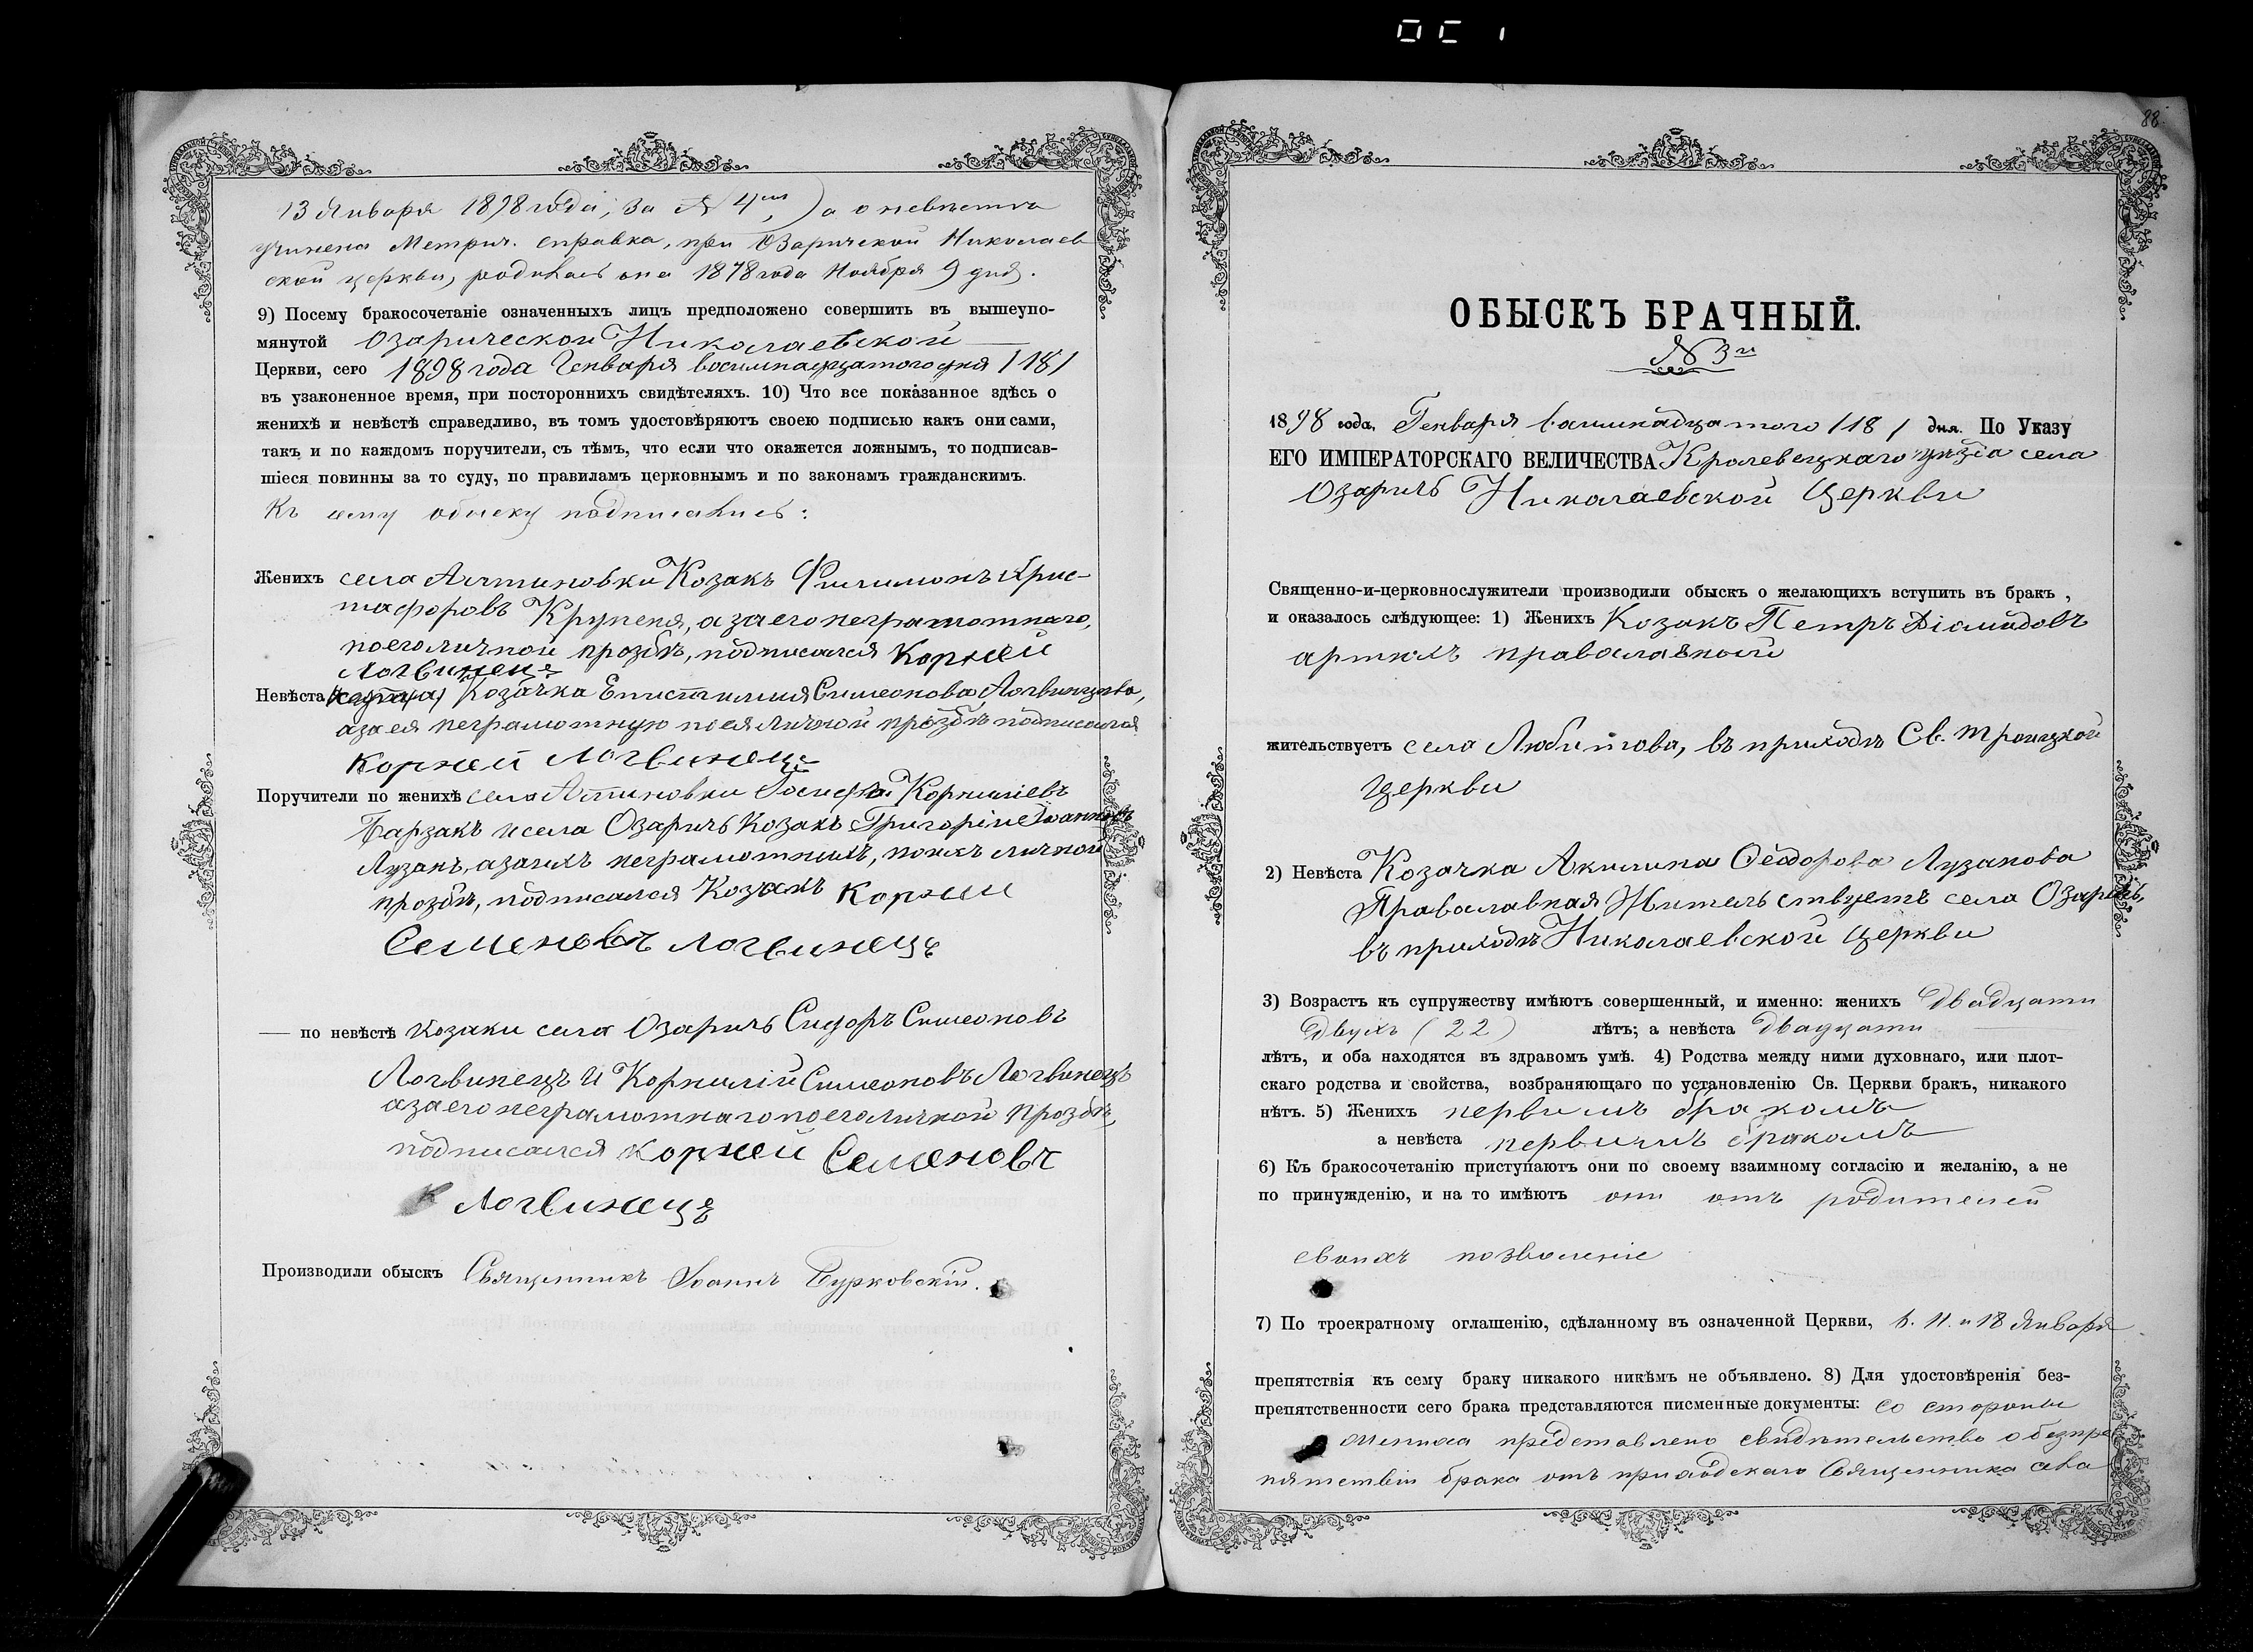 13 Января 1898 года, за № 4мъ, а о невѣстѣ
учинена Метрич. справка, при Озарической Николаев
ской церкви, родилась она 1878 года Ноября 9 дня.
9) Посему бракосочетаніе означенныхъ лицъ предположено совершить въ вышеупо-
мянутой Озарической Николаевской
Церкви, сего 1898 года Генваря восимнадцатого дня /18/
въ узаконенное время, при постороннихъ свидѣтеляхъ. 10) Что все показанное здѣсь о
женихѣ и невѣстѣ справедливо, въ томъ удостовѣряютъ своею подписью какъ они сами,
такъ и по каждомъ поручители, съ тѣмъ, что если что окажется ложнымъ, то подписав-
шіеся повинны за то суду, по правиламъ церковнымъ и по законамъ гражданскимъ.
Къ сему обыску подписались:
Женихъ села Алтиновки Козакъ Филимонъ Хрис-
тафоровъ Крупеня, а за его неграмотнаго,
по его личной прозбѣ, подписался Корней
Логвинецъ
Невѣста Козачка Епистимия Симеонова Логвинцова,
а за ея неграмотную по ея личной прозбѣ подписался
Корней Логвинецъ
Поручители по женихѣ села Алтиновки Корнилиевъ
Барзакъ и села Озаричъ Козакъ Григорій Іоанновъ
Лузанъ, а за ихъ неграмотныхъ, по ихъ личной
прозбѣ, подписался Козакъ Корней
Семеновъ Логвинецъ
— по невѣстѣ Козаки села Озаричъ Сидоръ Симеоновъ
Логвинецъ и Корнилій Симеоновъ Логвинецъ
а за его неграмотнаго по его личной прозбѣ,
подписался Корней Семеновъ
Логвинецъ
Производили обыскъ Священникъ Іоаннъ Бурковскій.
88
ОБЫСКЪ БРАЧНЫЙ.
№ 3й
1898 года, Генваря восимнадцатого /18/ дня. По Указу
ЕГО ИМПЕРАТОРСКАГО ВЕЛИЧЕСТВА Кролевецкаго уѣзда села
Озаричъ Николаевской Церкви
Священно-и-церковнослужители производили обыскъ о желающихъ вступить въ бракъ ,
и оказалось слѣдующее: 1) Женихъ Козакъ Петръ
православный
жительствуетъ села Любитова, въ приходѣ Св. Троицкой
Церкви
2) Невѣста Козачка Акилина Ѳеодорова Лузанова
Православная Жительствуетъ села Озаричъ,
въ приходѣ Николаевской Церкви
3) Возрастъ къ супружеству имѣютъ совершенный, и именно: женихъ двадцати
двухъ (22) лѣтъ; а невѣста двадцати
лѣтъ, и оба находятся въ здравомъ умѣ. 4) Родства между ними духовнаго, или плот-
скаго родства и свойства, возбраняющаго по установленію Св. Церкви бракъ, никакого
нѣтъ. 5) Женихъ первимъ бракомъ
а невѣста первимъ бракомъ
6) Къ бракосочетанію приступаютъ они по своему взаимному согласію и желанію, а не
по принужденію, и на то имѣютъ они отъ родителей
своихъ позволеніе
7) По троекратному оглашенію, сдѣланному въ означенной Церкви, 6. 11. и 18 Января
препятствія къ сему браку никакого никѣмъ не объявлено. 8) Для удостовѣренія без-
препятственности сего брака представляются писменные документы: со стороны
жениха представлено свидѣтельство о безпре
пятствіи брака отъ приходскаго Священника села